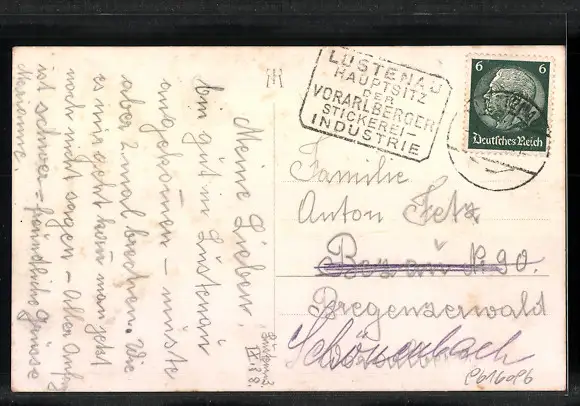 Meine Lieben,
bin gut in Lustenau
angekommen - müste
aber 2 mal brechen. Wie
es mir geht kann man jetzt
noch nicht sagen - Aller Anfang
ist schwer - freundliche Grüsse
LUSTENAU
HAUPTSITZ
DER
VORARLBERGER
STICKEREI-
INDUSTRIE
6 6
Deutsches Reich
Familie
Anton Fetz
Bezau № 90.
Bregenzerwald
Schönenbach
9616096